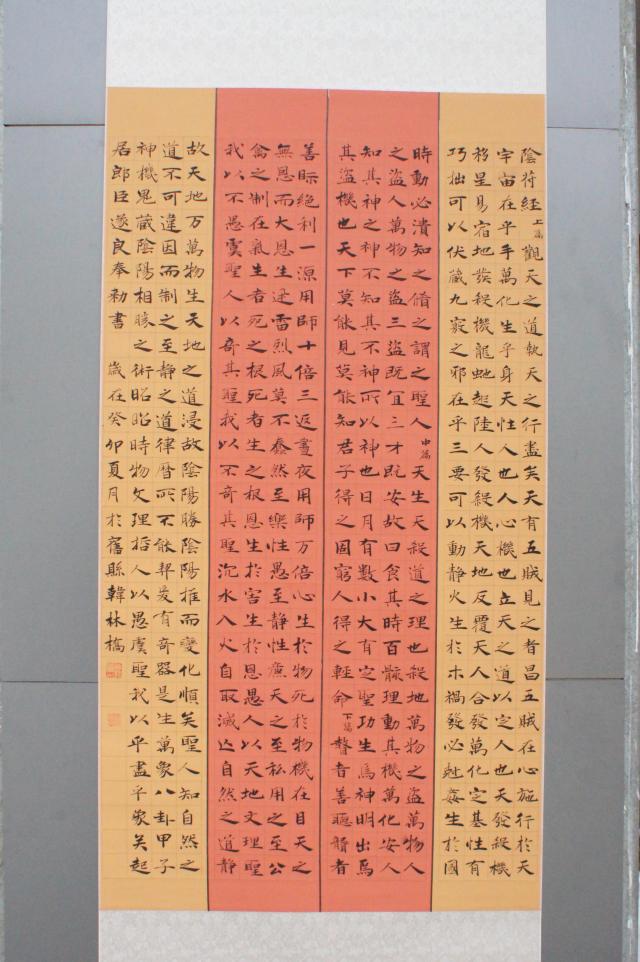 陰符經上篇觀天之道執天之行盡矣天有五賊見之者昌五賊在心施行於天
宇宙在乎手萬化生乎身天性人也人心機也立天之道以定人也天發殺機
移星易宿地發殺機龍虵起陸人發殺機天地反覆天人合發萬化定基性有
巧拙可以伏藏九竅之邪在乎三要可以動靜火生於木禍發必尅姦生於國
時動必潰知之脩之謂之聖人中篇天生天殺道之理也殺地萬物之盜萬物人
之盜人萬物之盜三盜既宜三才既安故曰食其時百骸理動其機萬化安人
知其神之神不知其不神所以神也日月有數小大有定聖功生焉神明出焉
其盜機也天下莫能見莫能知君子得之固窮人得之輕命下篇瞽者善聽聾者
善眎絕利一源用師十倍三返晝夜用師万倍心生於物死於物機在目天之
無恩而大恩生迅雷烈風莫不蠢然至樂性愚至靜性廉天之至私用之至公
禽之制在氣生者死之根死者生之根恩生於害生於恩愚人以天地文理聖
我以不愚虞聖人以奇其聖我以不奇其聖沉水入火自取滅亡自然之道靜
故天地万萬物生天地之道浸故陰陽勝陰陽推而變化順矣聖人知自然之
道不可違因而制之至靜之道律曆所不能契爰有奇器是生萬象八卦甲子
神機鬼藏陰陽相勝之術昭昭時物文理哲人以愚虞聖我以乎盡乎象矣起
居郎臣遂良奉勑書 歲在癸卯夏月於舊縣韓林橋